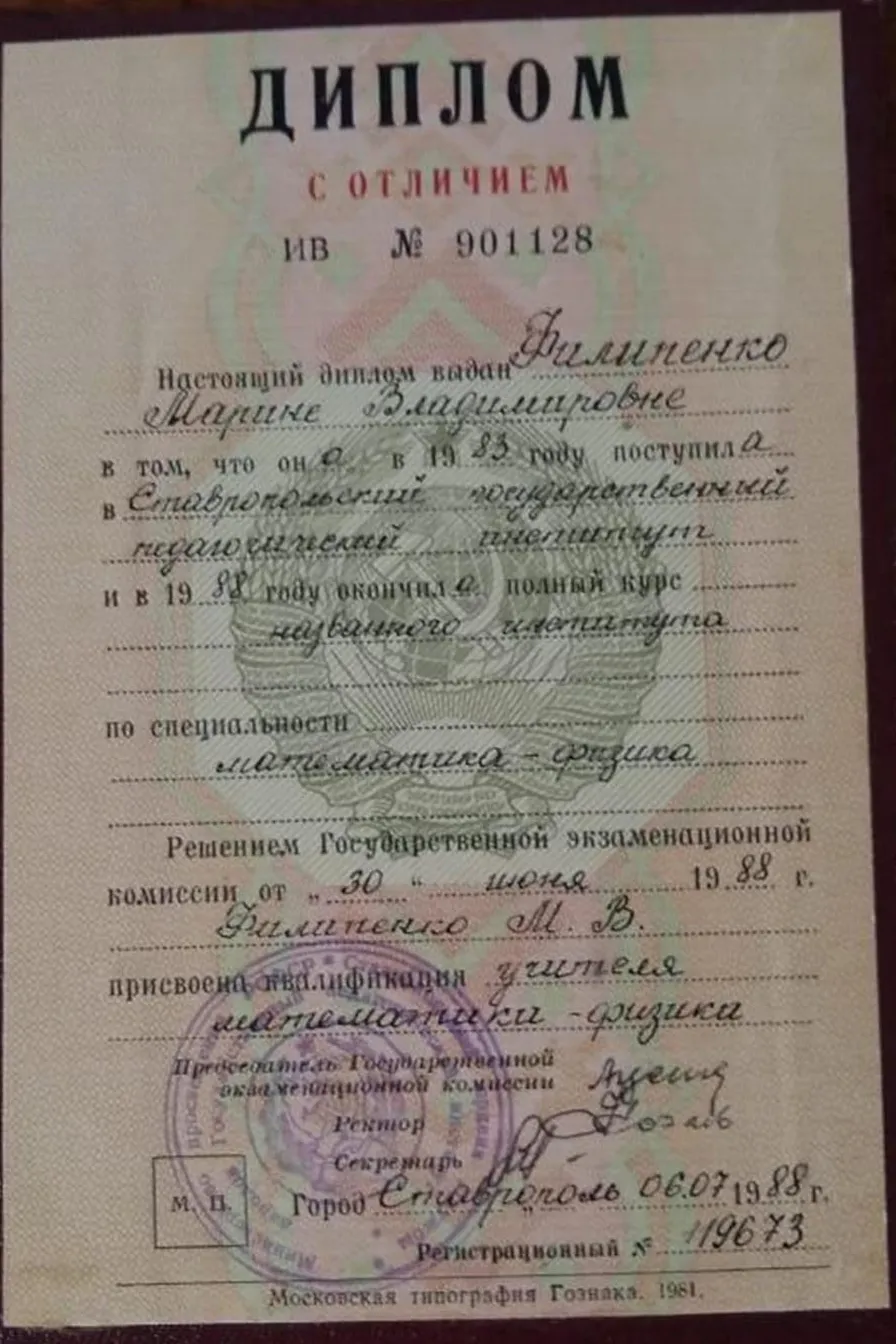 ДИПЛОМ
С ОТЛИЧИЕМ
ИВ № 901128
Настоящий диплом выдан Филипенко
Марине Владимировне
в том, что он а в 19 83 году поступил а
в Ставропольский государственный
педагогический институт
и в 19 88 году окончил а полный курс
названного института
по специальности
математика - физика
Решением Государственной экзаменационной
комиссии от „ 30 “ июня 19 88 г.
Филипенко М. В.
присвоена квалификация учителя
математики - физика
Председатель Государственной
экзаменационной комиссии
Ректор
Секретарь
М. П.
Город Ставрополь 06.07 19 88 г.
Регистрационный № 119673
Московская типография Гознака. 1981.